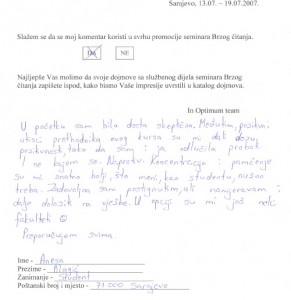 Sarajevo, 13.07. – 19.07.2007.
Slažem se da se moj komentar koristi u svrhu promocije seminara Brzog čitanja.
DA NE
Najljepše Vas molimo da svoje dojmove sa službenog dijela seminara Brzog
čitanja zapišete ispod, kako bismo Vaše impresije uvrstili u katalog dojmova.
In Optimum team
U početku sam bila dosta skeptična. Međutim, pozitivni
utisci prethodnika ovog kursa su mi dali dozu
pozitivnosti, tako da sam i ja odlučila probati
I ne kajem se. Naprotiv. Koncentracija i pamćenje
su mi znatno bolji, što meni, kao studentu, nužno
treba. Zadovoljna sam postignutim, ali namjeravam i
dalje dolaziti na vježbe. U opciji su mi još neki
fakulteti ☺
Preporučujem svima.
Ime - Anesa
Prezime -
Zanimanje - Student
Poštanski broj i mjesto - 71 000 Sarajevo